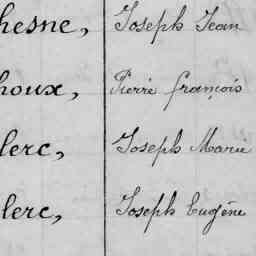 hesne, Joseph Jean
houx, Pierre françois
lerc, Joseph Marie
lerc, Joseph Eugène